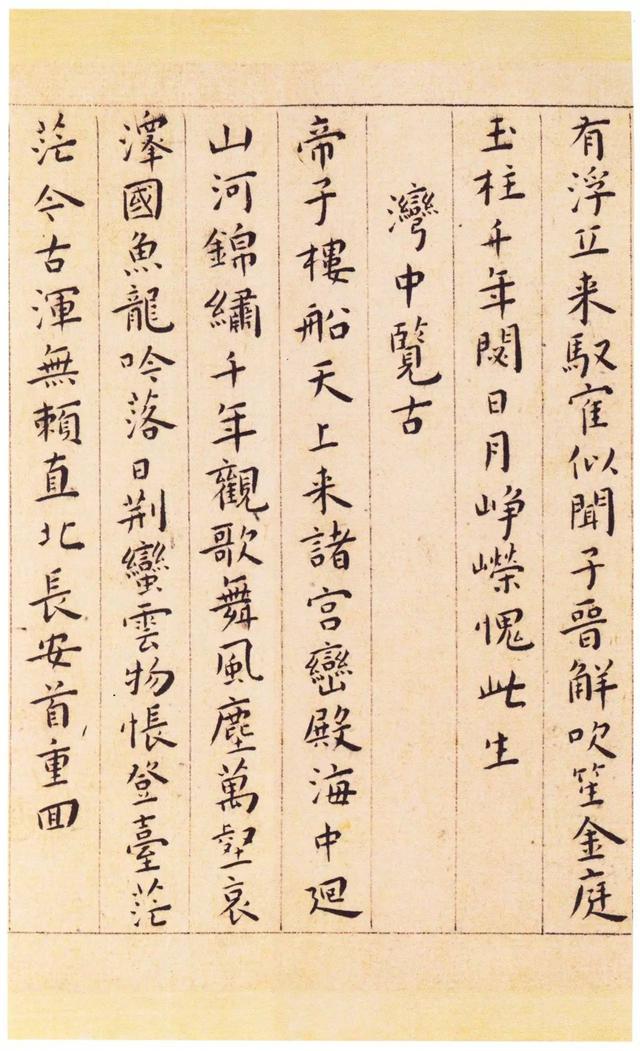 有浮丘来馭隺似聞子晉解吹笙金庭
玉柱千年閟日月峥嶸愧此生
灣中覽古
帝子樓船天上来諸宫巒殿海中廻
山河錦繡千年觀歌舞風塵萬壑哀
澤國魚龍吟落日荆蠻雲物悵登臺茫
茫今古渾無賴直北長安首重囬